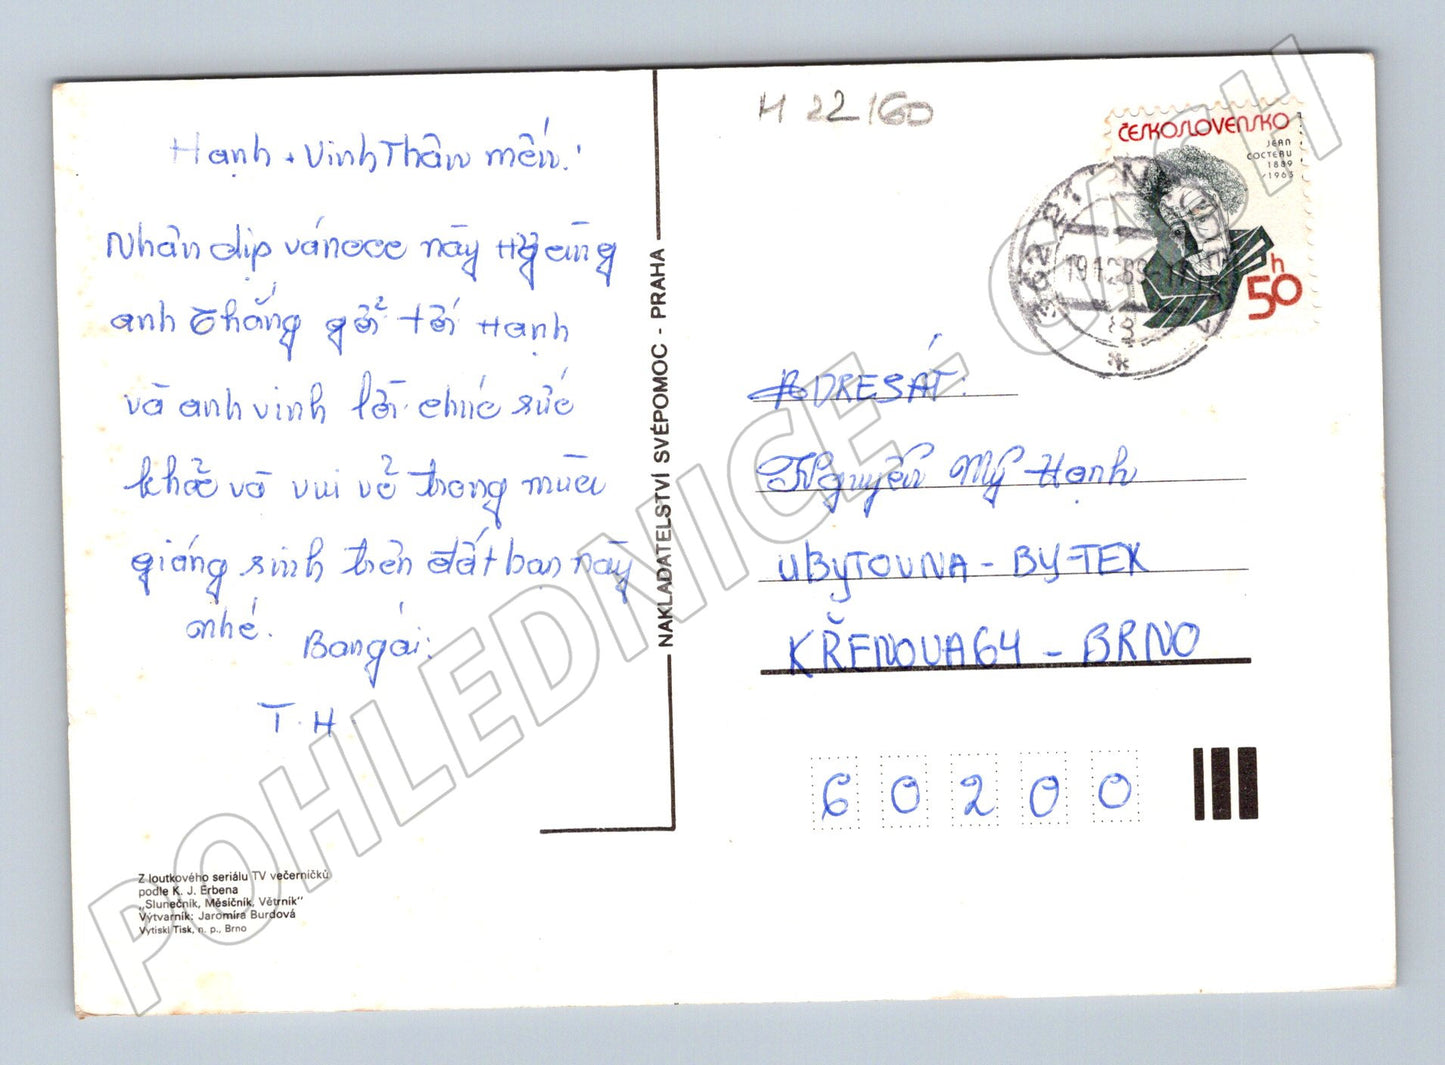 Hạnh + Vinh Thân mến!
Nhân dịp vánoce này Hg cùng
anh Thắng gởi tới Hạnh
và anh vinh lời chúc sức
khỏe và vui vẻ trong mùa
giáng sinh trên đất bạn này
nhé.
Bạn gái:
T. H
Z loutkového seriálu TV večerníčků
podle K. J. Erbena
„Slunečník, Měsíčník, Větrník"
Výtvarník: Jaromíra Burdová
Vytiskl Tisk, n. p., Brno
NAKLADATELSTVÍ SVÉPOMOC - PRAHA
H 22160
ČESKOSLOVENSKO
JEAN
COCTEAU
1889
/1963
50h
362 21
19.12.89-17
ADRESÁT:
Nguyễn Mỹ Hạnh
UBYTOVNA - BY-TEX
KŘENOVA 64 - BRNO
60200
POHLEDNICE - CASH